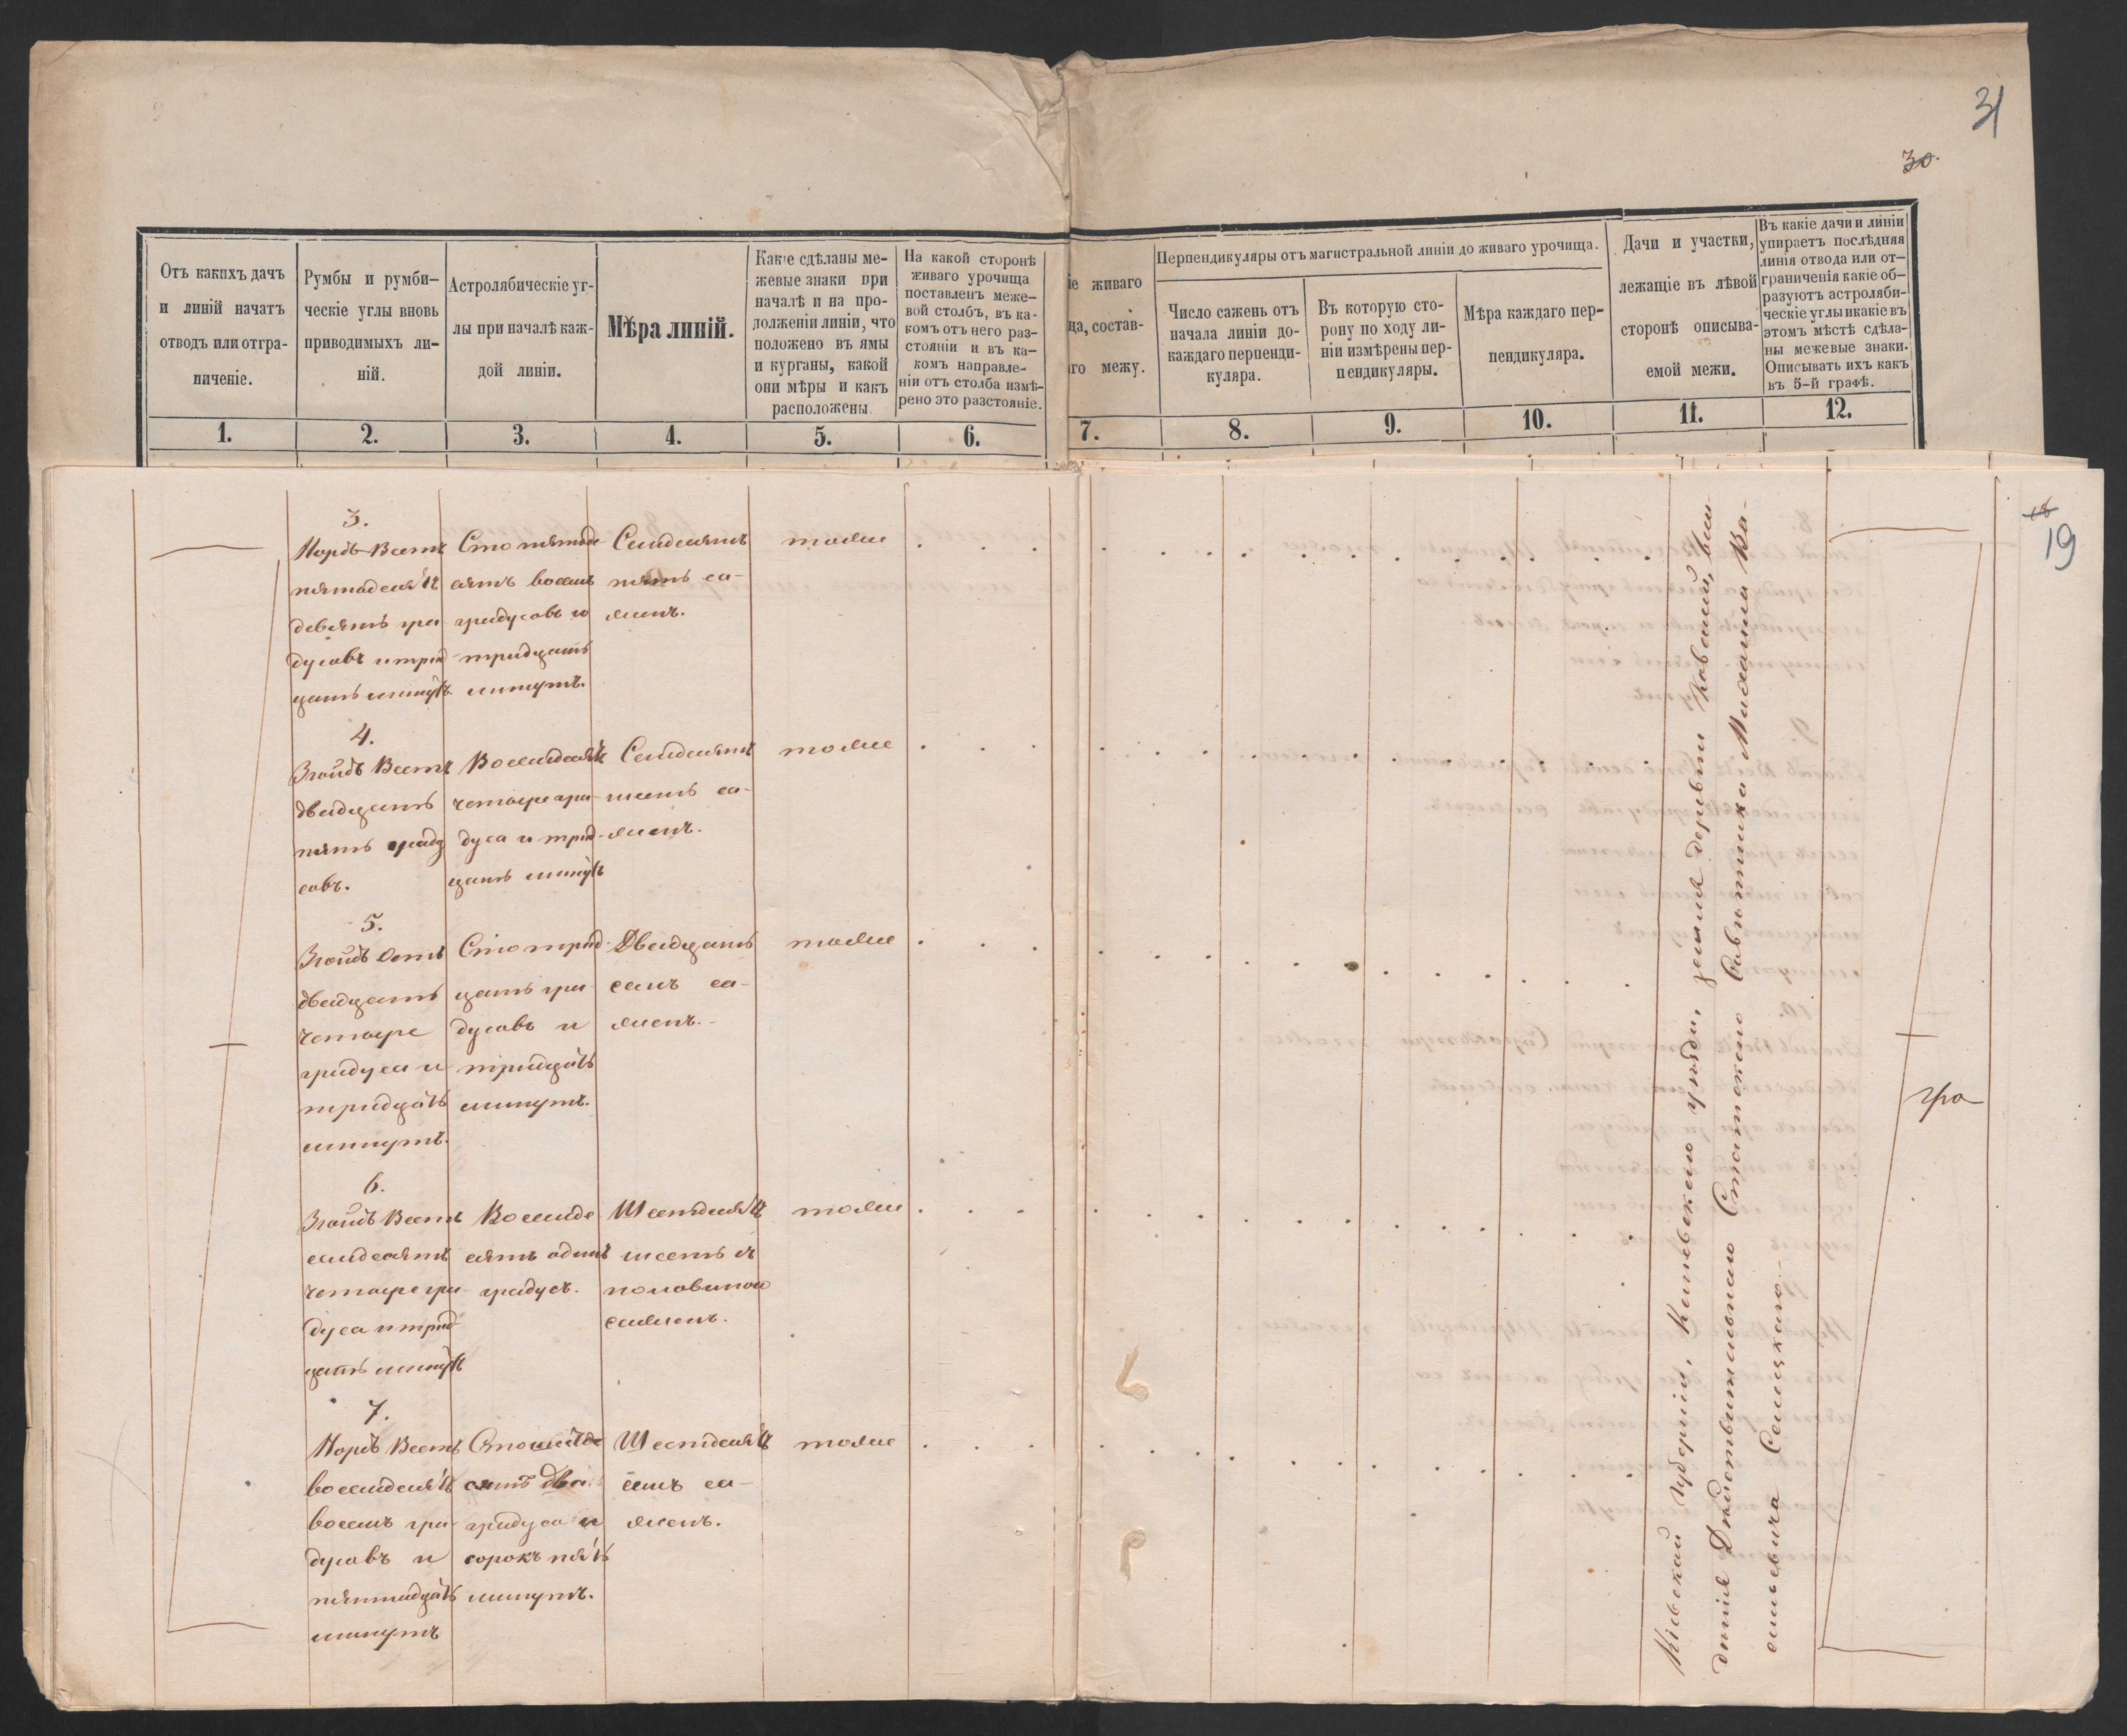 31
30.
Отъ какихъ дачъ
и линій начатъ
отводъ или отгра-
ниченіе.
Румбы и румби-
ческіе углы вновь
приводимыхъ ли-
ній.
Астролябическіе уг-
лы при началѣ каж-
дой линіи.
Мѣра линій.
Какіе сдѣланы ме-
жевые знаки при
началѣ и на про-
долженіи линіи, что
положено въ ямы
и курганы, какой
они мѣры и какъ
расположены.
На какой сторонѣ
живаго урочища
поставленъ меже-
вой столбъ, въ ка-
комъ отъ него раз-
стояніи и въ ка-
комъ направле-
ніи отъ столба измѣ-
рено это разстояніе.
іе живаго
ща, состав-
аго межу.
Перпендикуляры отъ магистральной линіи до живаго урочища.
Число сажень отъ
начала линіи до-
каждаго перпенди-
куляра.
Въ которую сто-
рону по ходу ли-
ніи измѣрены пер-
пендикуляры.
Мѣра каждаго пер-
пендикуляра.
Дачи и участки,
лежащіе въ лѣвой
сторонѣ описыва-
емой межи.
Въ какіе дачи и линіи
упираетъ послѣдняя
линія отвода или от-
граниченія какіе об-
разуютъ астроляби-
ческіе углы и какіе въ
этомъ мѣстѣ сдѣла-
ны межевые знаки.
Описывать ихъ какъ
въ 5-й графѣ.
1. 2. 3. 4. 5. 6. 7. 8. 9. 10. 11. 12.
19
3.
Нордъ Вестъ
пятьдесятъ
девять гра-
дусовъ и трид-
цать минутъ.
Сто пятьде
сятъ восемь
градусовъ и
тридцать
минутъ.
Семдесятъ
пять са-
женъ.
тоже
4.
Зюйдъ Вестъ
двадцать
пять граду
совъ.
Восемдесятъ
четыре гра-
дуса и трид-
цать минутъ
Семдесятъ
шесть са-
женъ.
тоже
5.
Зюйдъ Остъ
двадцать
четыре
градуса и
тридцать
минутъ.
Сто трид-
цать гра-
дусовъ и
тридцать
минутъ.
Двадцать
семь са-
женъ.
тоже
6.
Зюйдъ Вестъ
семдесятъ
четыре гра-
дуса и трид-
цать минутъ
Восемде
сятъ одинъ
градусъ.
Шестдесятъ
шесть съ
половиною
саженъ.
тоже
7.
Нордъ Вестъ
восемдесятъ
восемь гра-
дусовъ и
пятнадцать
минутъ
Сто шестьде
сятъ два
градуса и
сорокъ пять
минутъ.
Шестдесятъ
семь са-
женъ.
тоже
Кіевской губерніи, Кіевскаго уѣзда, земля деревни Ковалий, вла-
дѣнія Дѣйствительнаго Статскаго Совѣтника Михаила Ва-
сильевича Селецкаго.
гра